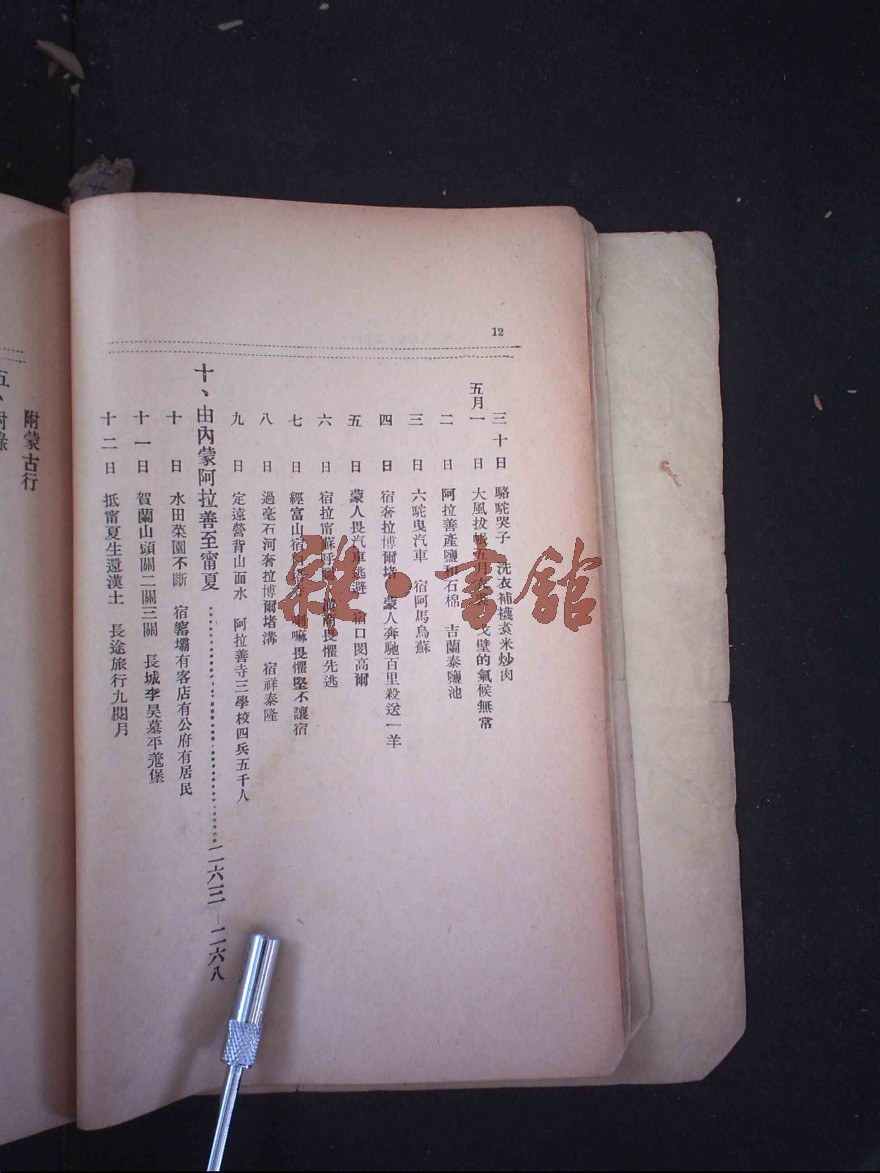 12
三十日 駱駝哭子 洗衣補襪煑米炒肉
五月一日 大風拔帳五月衣裘 戈壁的氣候無常
二日 阿拉善產鹽和石棉 吉蘭泰鹽池
三日 六駝曳汽車 宿阿馬烏蘇
四日 宿奢拉博爾堵 蒙人奔馳百里殺送一羊
五日 蒙人畏汽車逃避 宿口閔高爾
六日 宿拉甯蘇呼圖 畏懼先逃
七日 經富山宿 喇嘛畏懼堅不讓宿
八日 過毫石河奢拉博爾堵溝 宿祥泰隆
九日 定遠營背山面水 阿拉善寺三學校四兵五千人
十、由內蒙阿拉善至甯夏 二六三—二六八
十日 水田菜園不斷 宿窰壩有客店有公府有居民
十一日 賀蘭山頭關二關三關 長城李昊墓平羗堡
十二日 抵甯夏生還漢土 長途旅行九閱月
附蒙古行
五、附錄
雜·書館